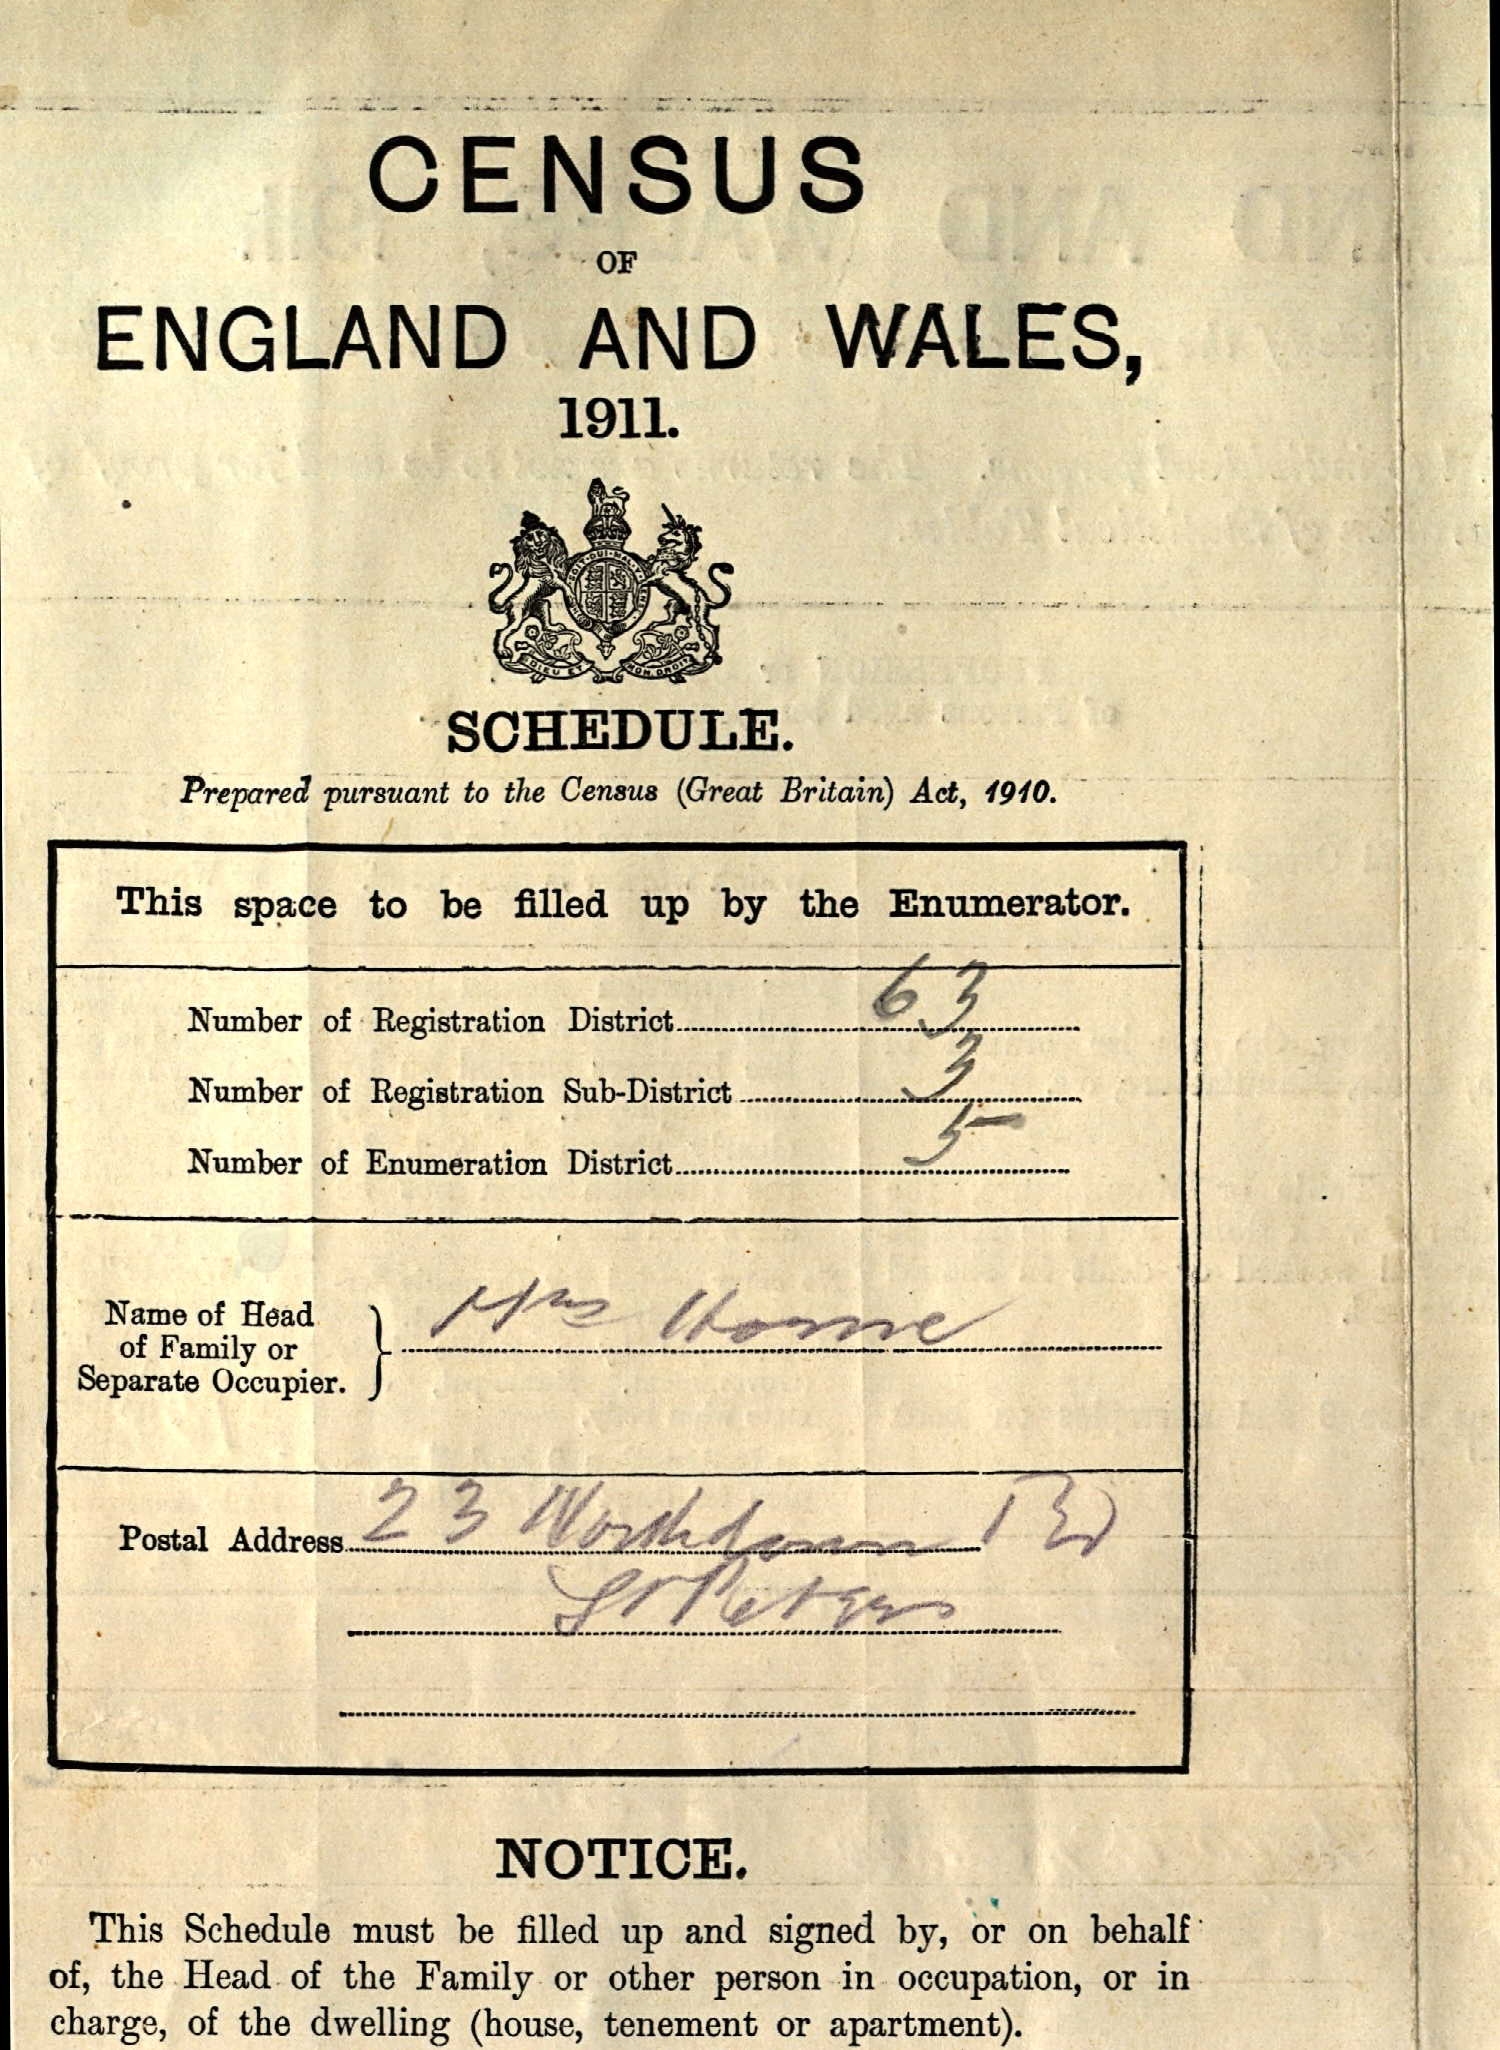 CENSUS
OF
ENGLAND AND WALES,
1911.
DIEU ET MON DROIT
SCHEDULE.
Prepared pursuant to the Census (Great Britain) Act, 1910.
This space to be filled up by the Enumerator.
Number of Registration District 63
Number of Registration Sub-District 3
Number of Enumeration District 5
Name of Head
of Family or
Separate Occupier. } Mrs Horne
Postal Address 23 Northdown Rd
St Peters
NOTICE.
This Schedule must be filled up and signed by, or on behalf
of, the Head of the Family or other person in occupation, or in
charge, of the dwelling (house, tenement or apartment).